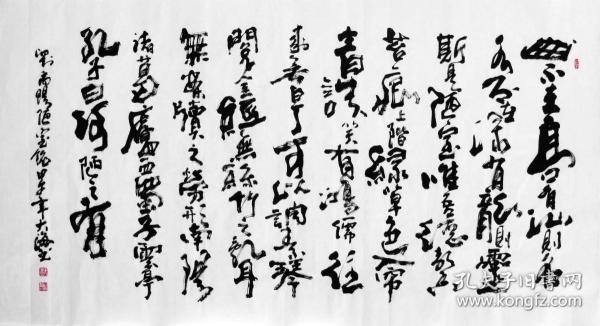 山不在高有仙則名
水不在深有龍則靈
斯是陋室惟吾德馨
苔痕上階綠草色入簾
青談笑有鴻儒往
來無白丁可以調素琴
閱金經無絲竹之亂耳
無案牘之勞形南陽
諸葛廬西蜀子雲亭
孔子曰何陋之有
劉禹錫陋室銘甲午年
孔夫子旧书网
www.kongfz.com